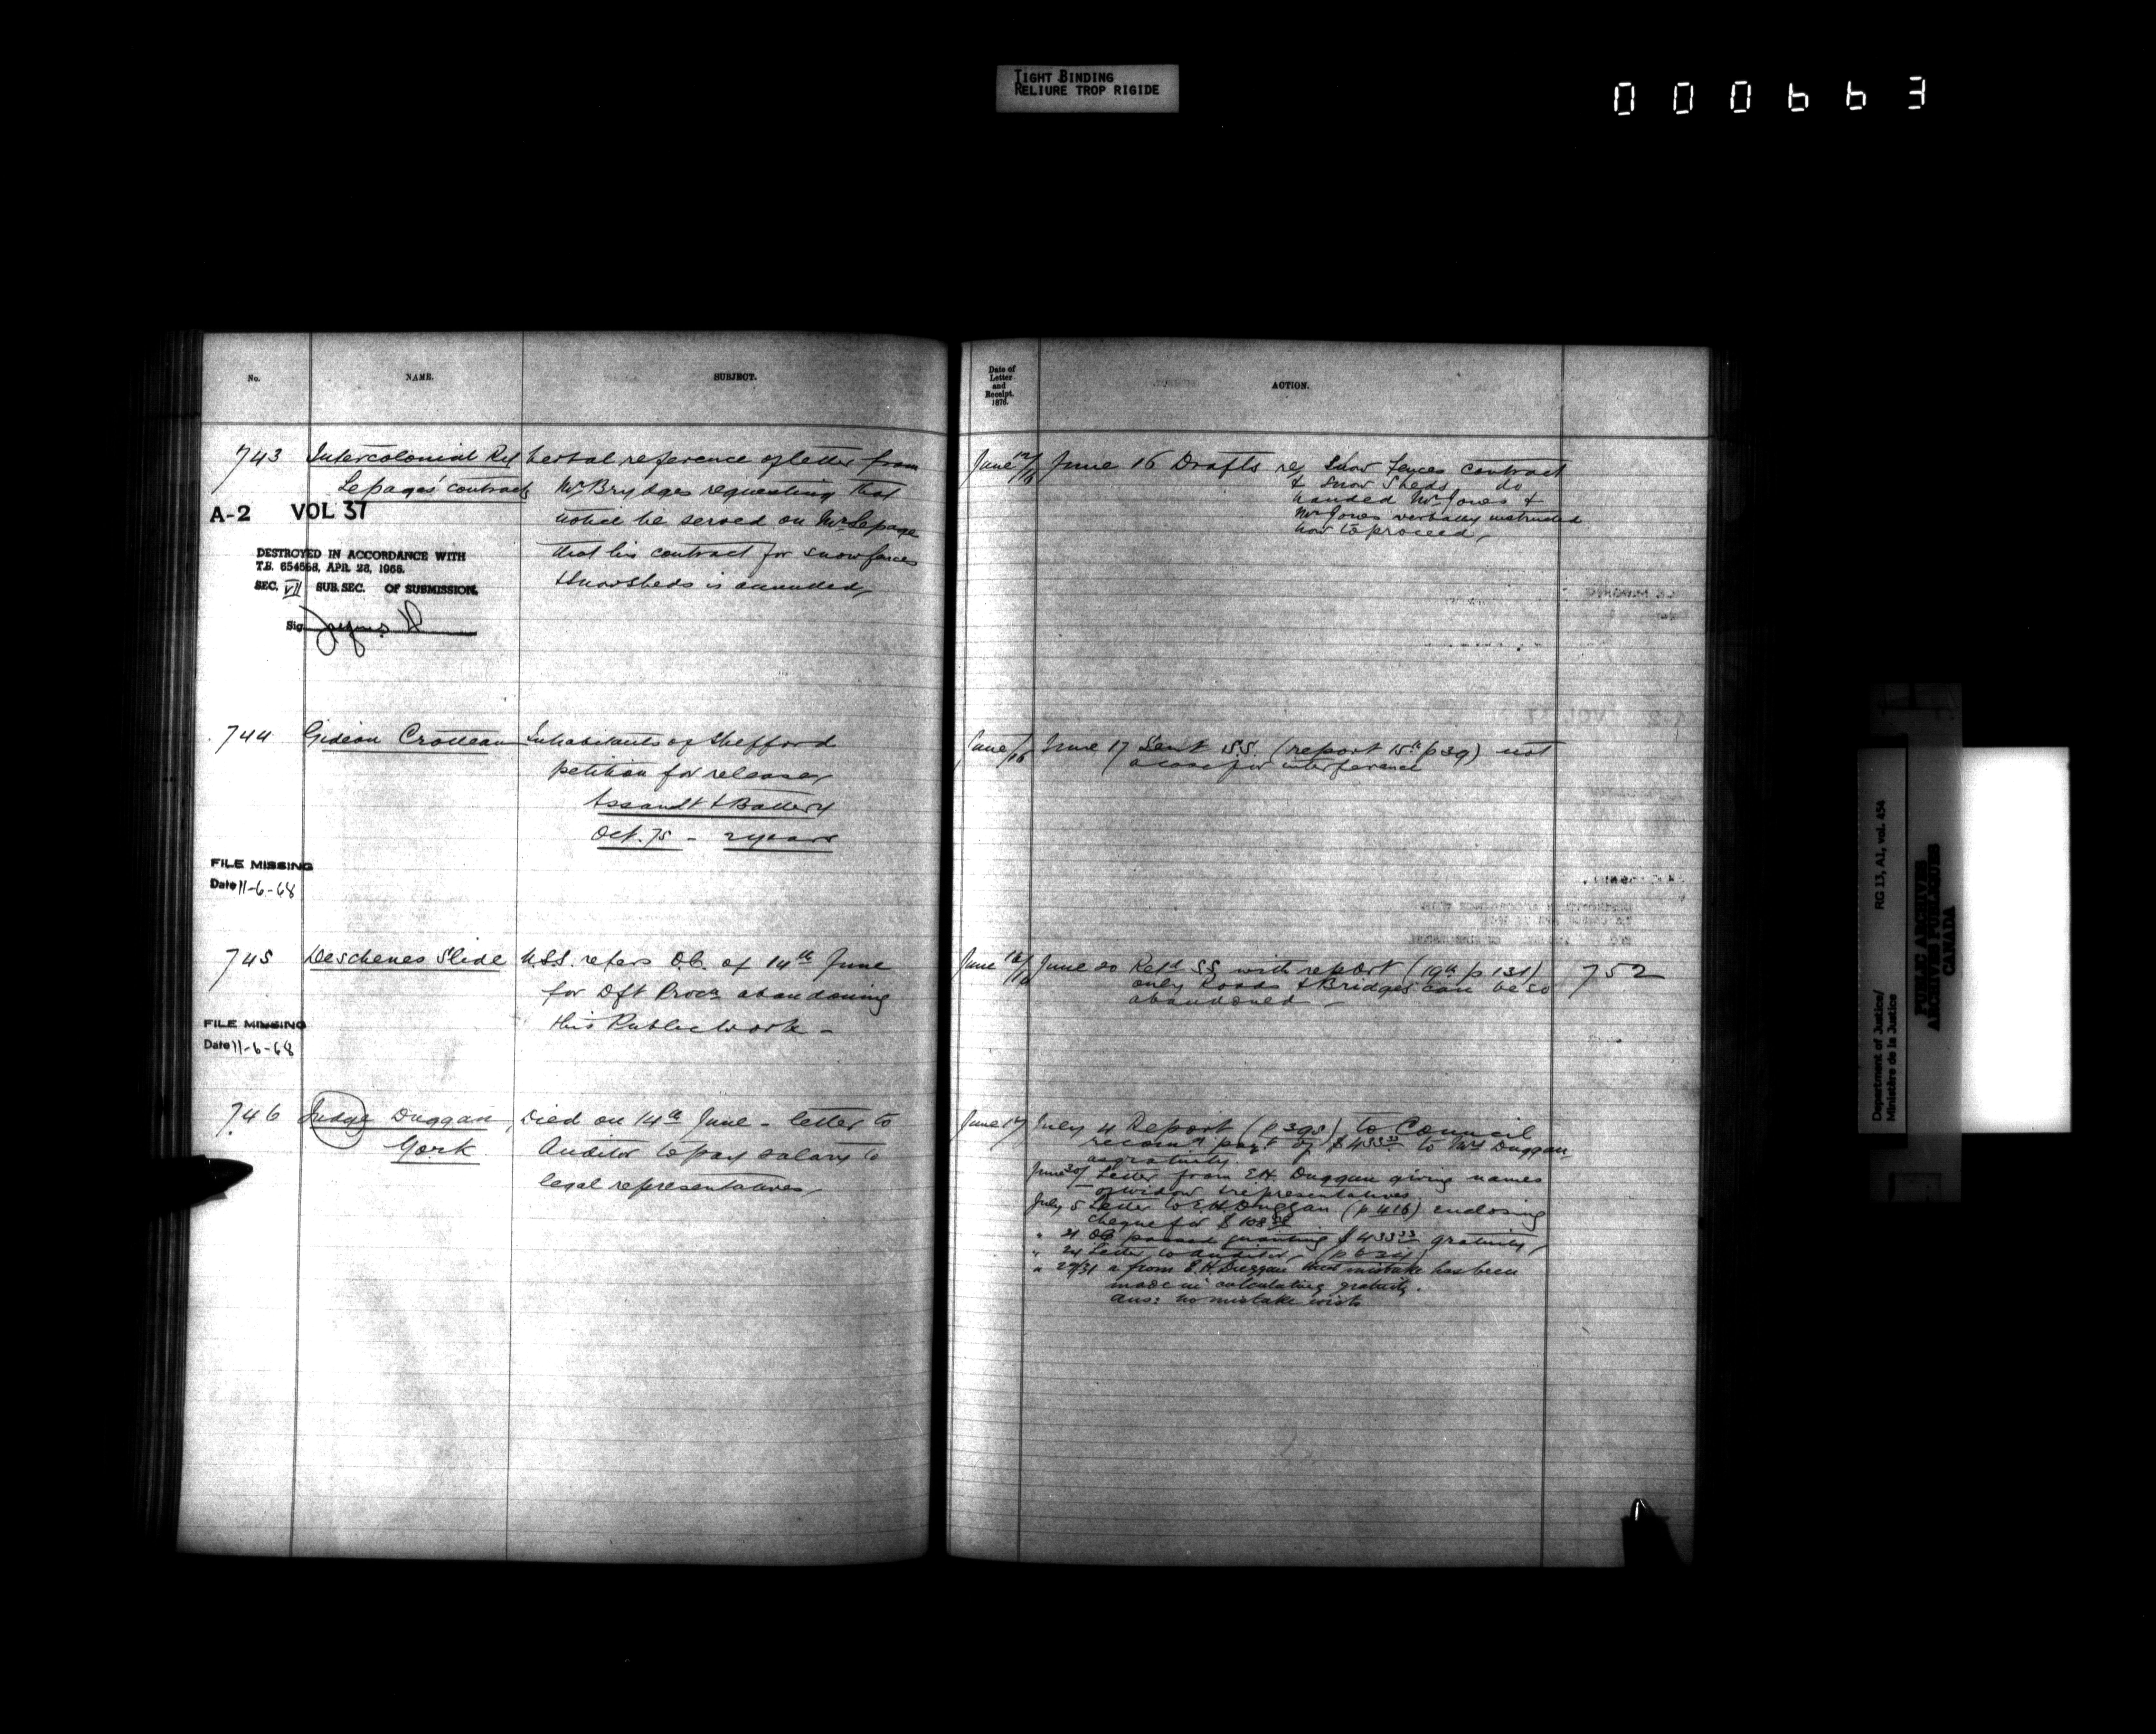 TIGHT BINDING
RELIURE TROP RIGIDE
000663
No.
NAME.
SUBJECT.
Date of
Letter
and
Receipt.
1876.
ACTION.
743 Intercolonial Ry Verbal reference of letter from
Lepage's contracts Mr Brydges requesting that
A-2 VOL 37
notice be served on Mr Lepage
that his contract for snow fences
& snow sheds is annulled,
DESTROYED IN ACCORDANCE WITH
T.B. 654568, APR. 28, 1966.
SEC. VII SUB. SEC. OF SUBMISSION.
Sig.
June 12/16 June 16 Drafts re Snow Fences contract
& Snow Sheds do
handed Mr Jones &
Mr Jones verbally instructed
how to proceed,
744 Gideon Croteau Inhabitants of Shefford
petition for release,
Assault & Battery
Oct. 75 - 2 years
FILE MISSING
Date 11-6-68
June /16 June 17 Sent S.S. (report 15th p 39) not
a case for interference
745 Deschenes Slide U.S.S. refers O.C. of 14th June
for Dft Procn abandoning
this Public Work -
FILE MISSING
Date 11-6-68
June 16/16 June 20 Retd SS with report (19th p 131) 752
only Roads & Bridges can be so
abandoned -
746 Judge Duggan, Died on 14th June - letter to
York Auditor to pay salary to
legal representatives,
June 17 July 4 Report (p 395) to Council
recomg payt of $433 33 to Mrs Duggan
as gratuity.
June 30/ Letter from E.H. Duggan giving names
of widow & representatives
July 5 Letter to E H Duggan (p 416) enclosing
cheque for $108
" 21 OC passed granting $433 33 gratuity,
" 24 Letter to Auditor,
" 29/31 " from E.H. Duggan that mistake has been
made in calculating gratuity.
Ans: no mistake exists
Department of Justice/
Ministère de la Justice
RG 13, A1, vol. 454
PUBLIC ARCHIVES
ARCHIVES PUBLIQUES
CANADA